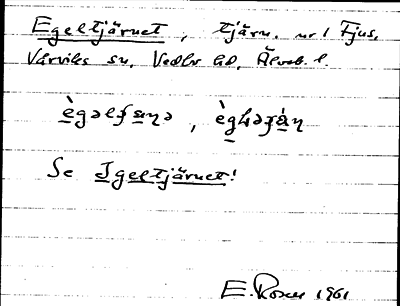 Egeltjärnet, tjärn, nr 1 Fjus,
Värviks sn, Vedbo hd, Älvsb. l.
Se Igeltjärnet!
E. Rosen 1961